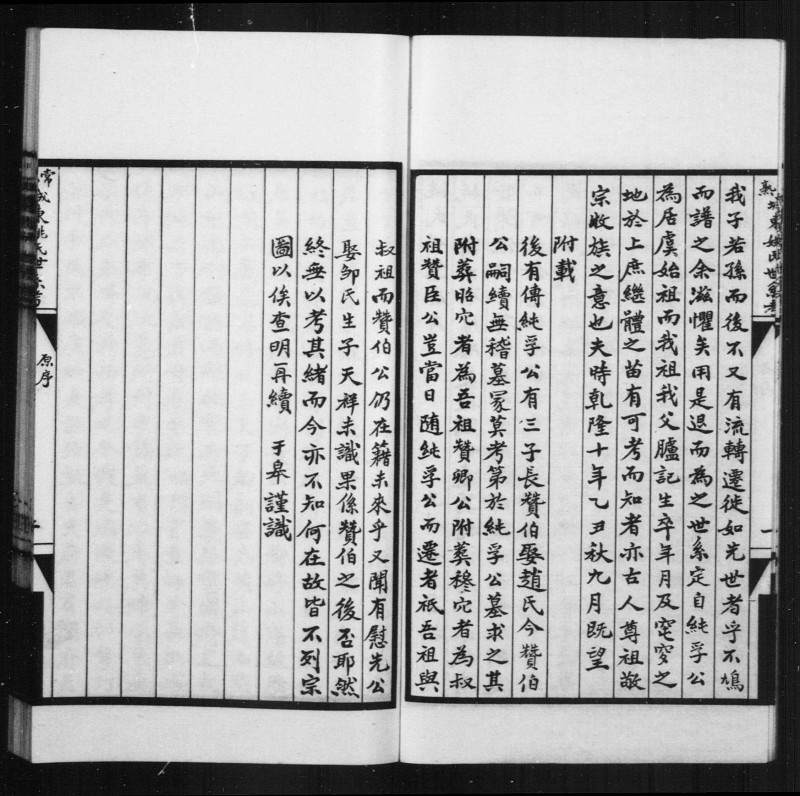 我子若孫而後不又有流轉遷徙如先世者乎不鳩
而譜之余滋懼矣用是退而為之世系定自純孚公
為居虞始祖而我祖我父臚記生卒年月及窀穸之
地於上庶繼體之苗有可考而知者亦古人尊祖敬
宗收族之意也夫時乾隆十年乙丑秋九月既望
附載
後有傳純孚公有三子長贊伯娶趙氏今贊伯
公嗣續無稽墓冡莫考第於純孚公墓求之其
附葬昭穴者為吾祖贊卿公附葬穆穴者為叔
祖贊臣公豈當日随純孚公而遷者祇吾祖與
叔祖而贊伯公仍在籍未來乎又聞有慰先公
娶邹氏生子天祥未識果係贊伯之後否耶然
終無以考其緒而今亦不知何在故皆不列宗
圖以俟查明再續　于皋謹識
原序